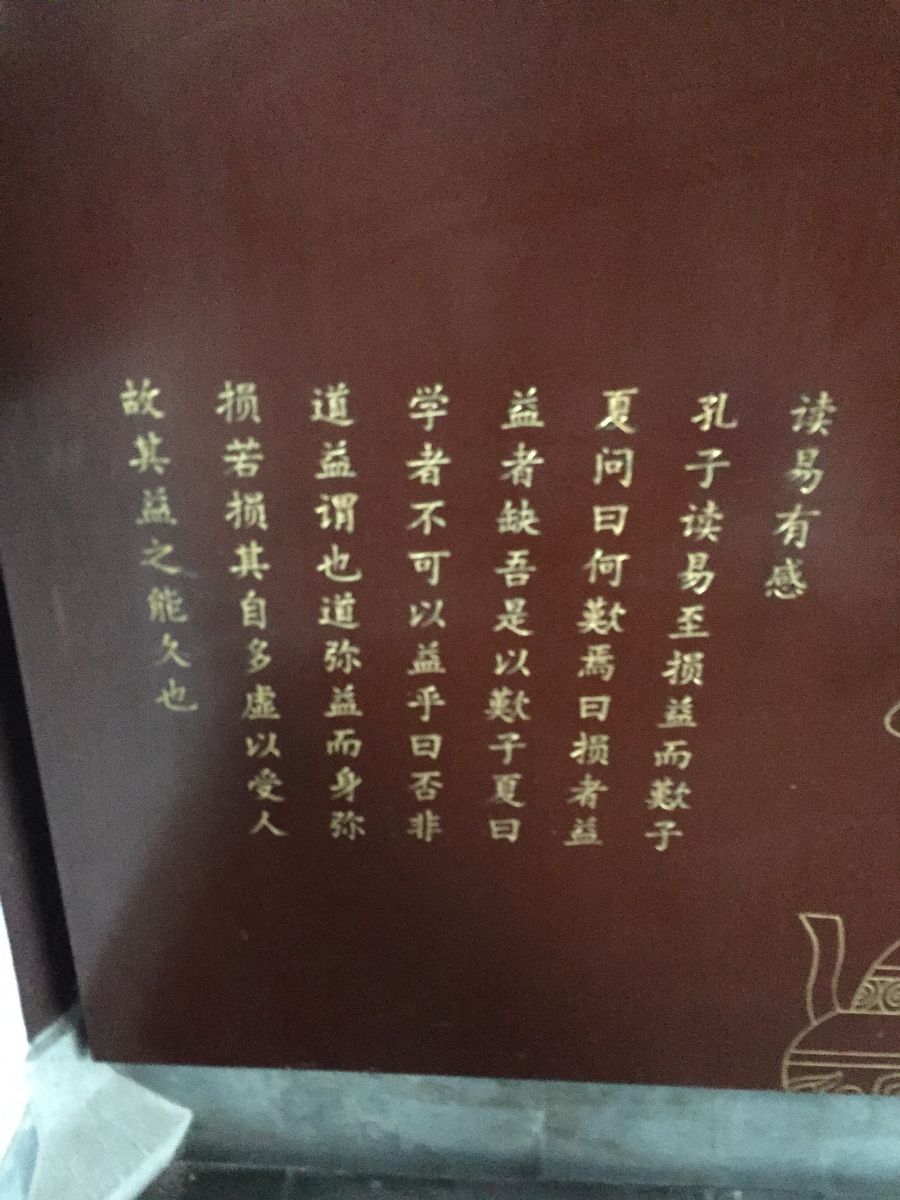 读易有感
孔子读易至损益而歎子
夏问曰何歎焉曰损者益
益者缺吾是以歎子夏曰
学者不可以益乎曰否非
道益谓也道弥益而身弥
损若损其自多虚以受人
故其益之能久也